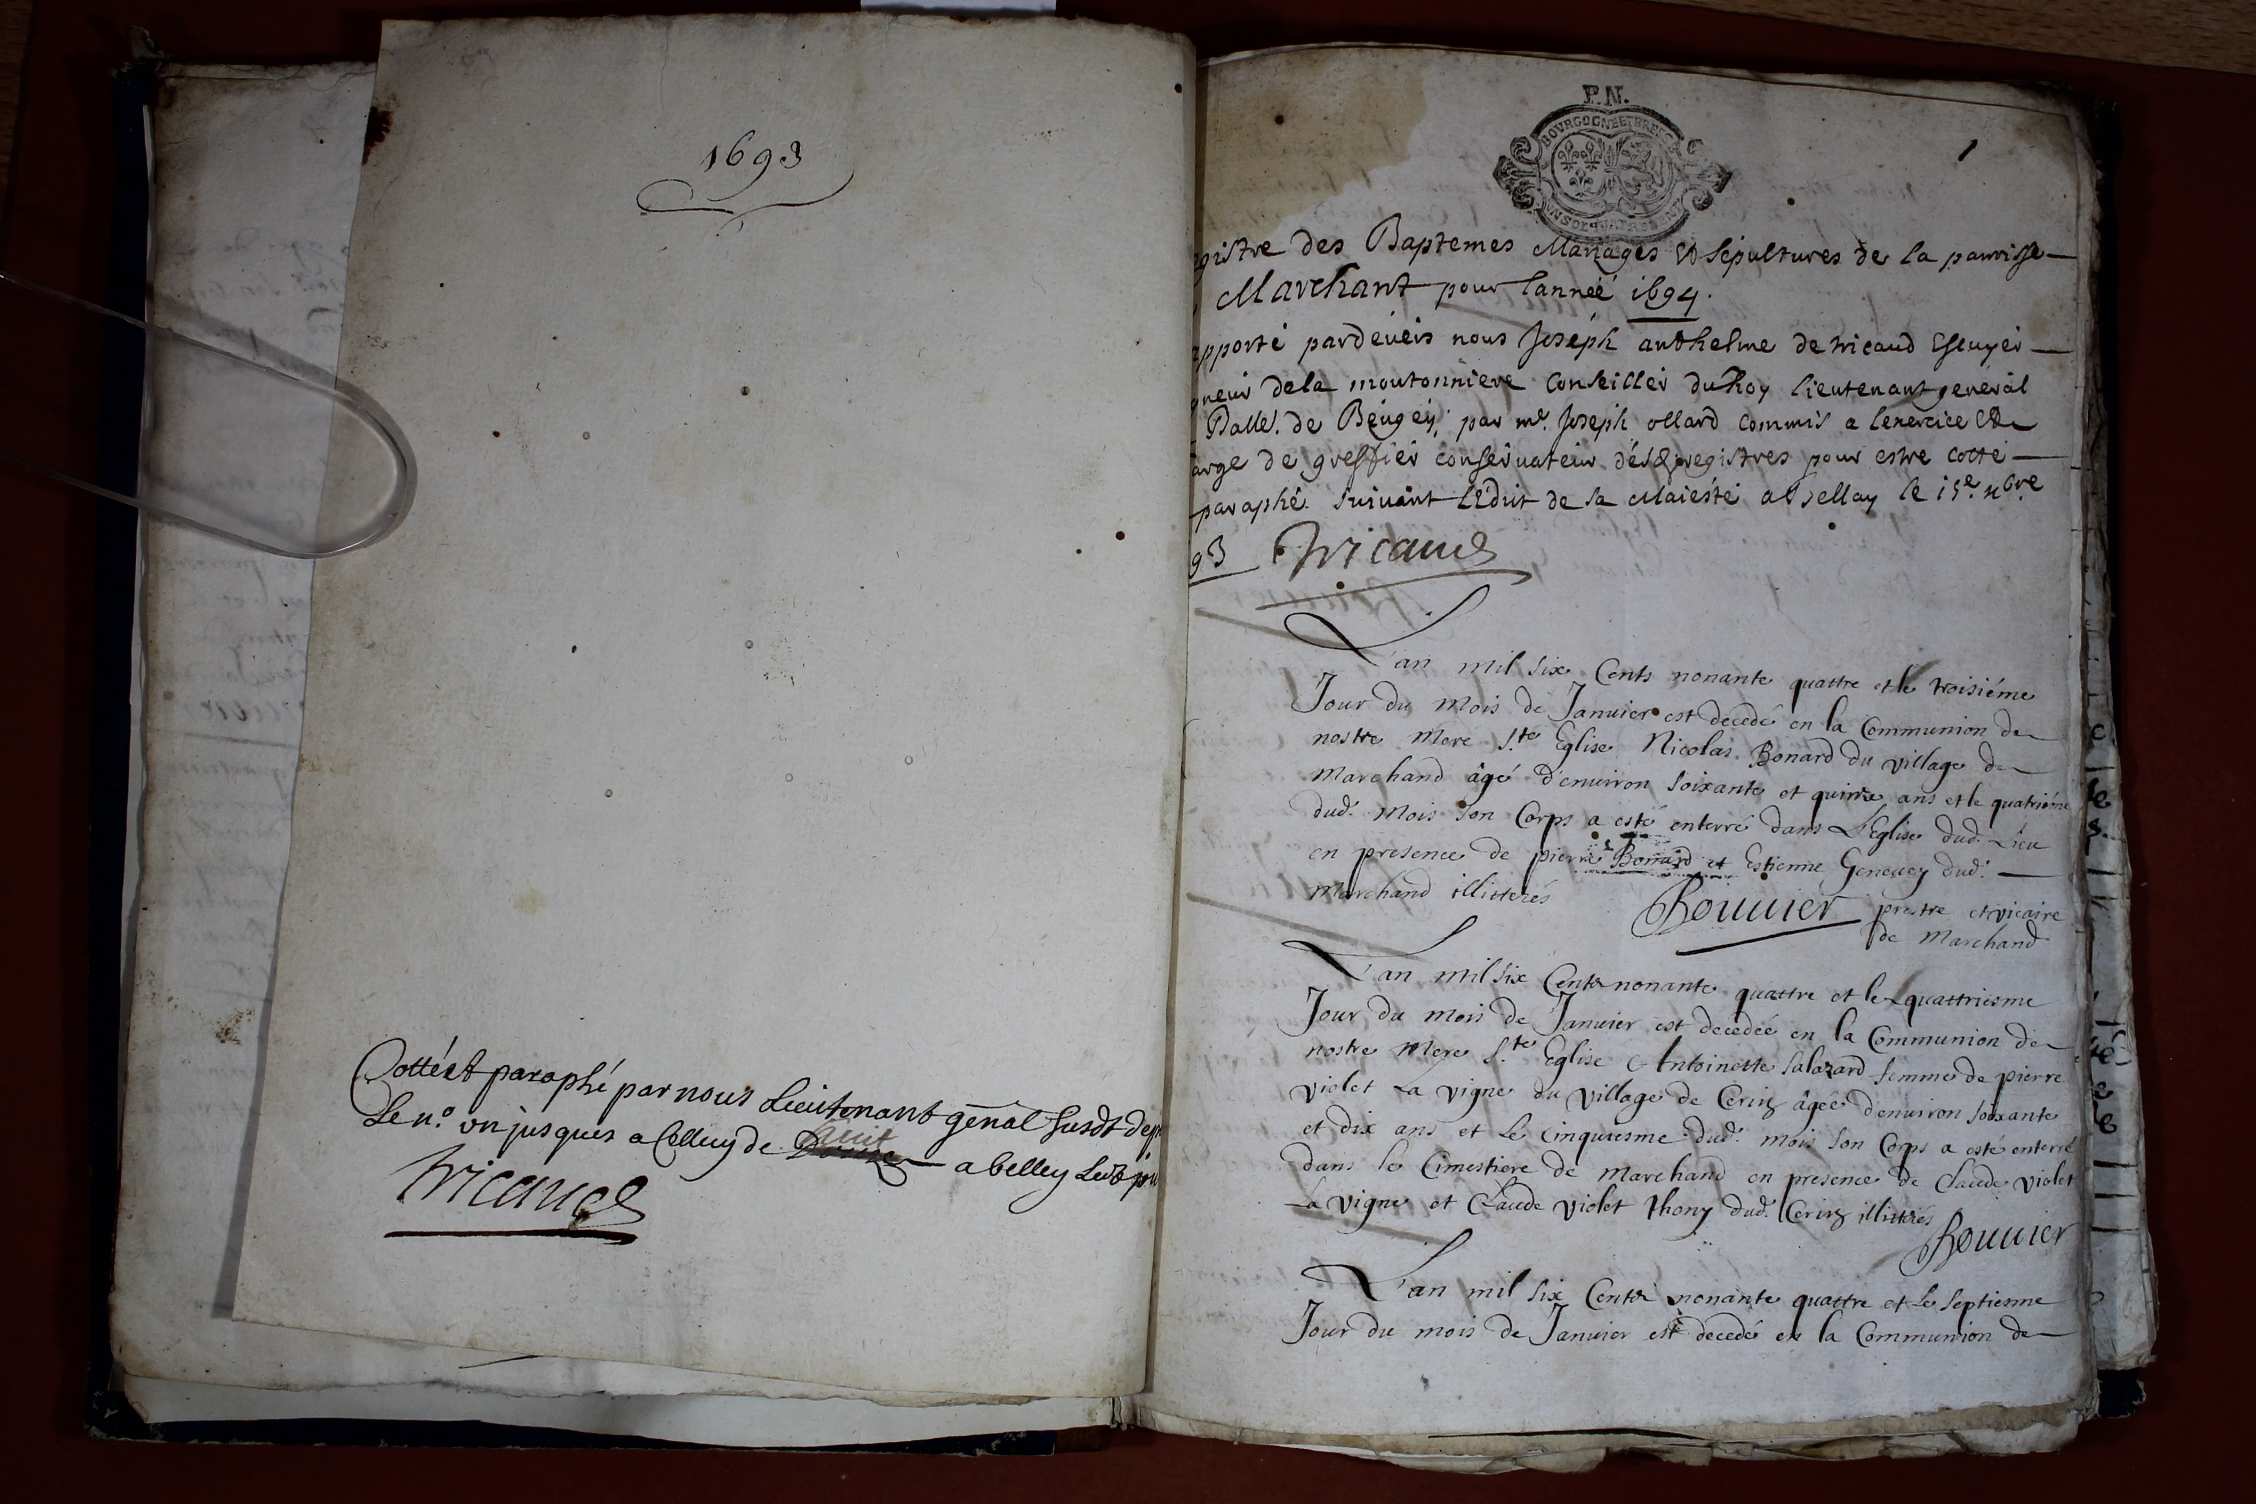 1693
Cottéet paraphé par nous Lieutenant genal susdt dep
Le n.o un jusques a Celluy de huit a belley Led jou
Tricaud
P.N.
BOURGOGNE ET BRESSE
1
gistre des Baptemes Mariages Et sepultures de la parroisse
Marchant pour lanneé 1694.
apporté pardeveis nous Joseph anthelme de tricaud Escuyer
gneur dela moutonniere Conseiller du Roy lieutenant general
Balle. de Beugey, par mr. Joseph ollard Commis a lexercice Et
arge de greffier conservateur desd. registres pour estre cotté
paraphé suivant LEdit de sa Maiesté a Bellay le 15e. xbre
93 Tricaud
L'an mil six Cents nonante quattre et le troisiéme
Jour du mois de Januier est decedé en la Communion de
nostre mere S.te Eglise Nicolas Bonard du village de
Marchand âgé d'enuiron soixante et quinze ans et le quatriéme
dud. mois son Corps a esté enterré dans L'Eglise dud. Lieu
en presence de pierre Bonard et Estienne Geneuey dud.
Marchand illitterés
Bouuier prestre et vicaire
de Marchand
L'an mil six Cents nonante quattre et le quattriesme
Jour du mois de Januier est decedeé en la Communion de
nostre Mere S.te Eglise Antoinette Salazard femme de pierre
violet La vigne du village de Ceriz âgeé d'enuiron soixante
et dix ans et Le Cinquiesme dud. mois son Corps a esté enterré
dans le Cimestiere de Marchand en presence de Claude violet
La vigne et Claude violet thony dud. Ceriz illitterés
Bouuier
L'an mil six Cents nonante quattre et Le septiesme
Jour du mois de Januier est decedé en la Communion de